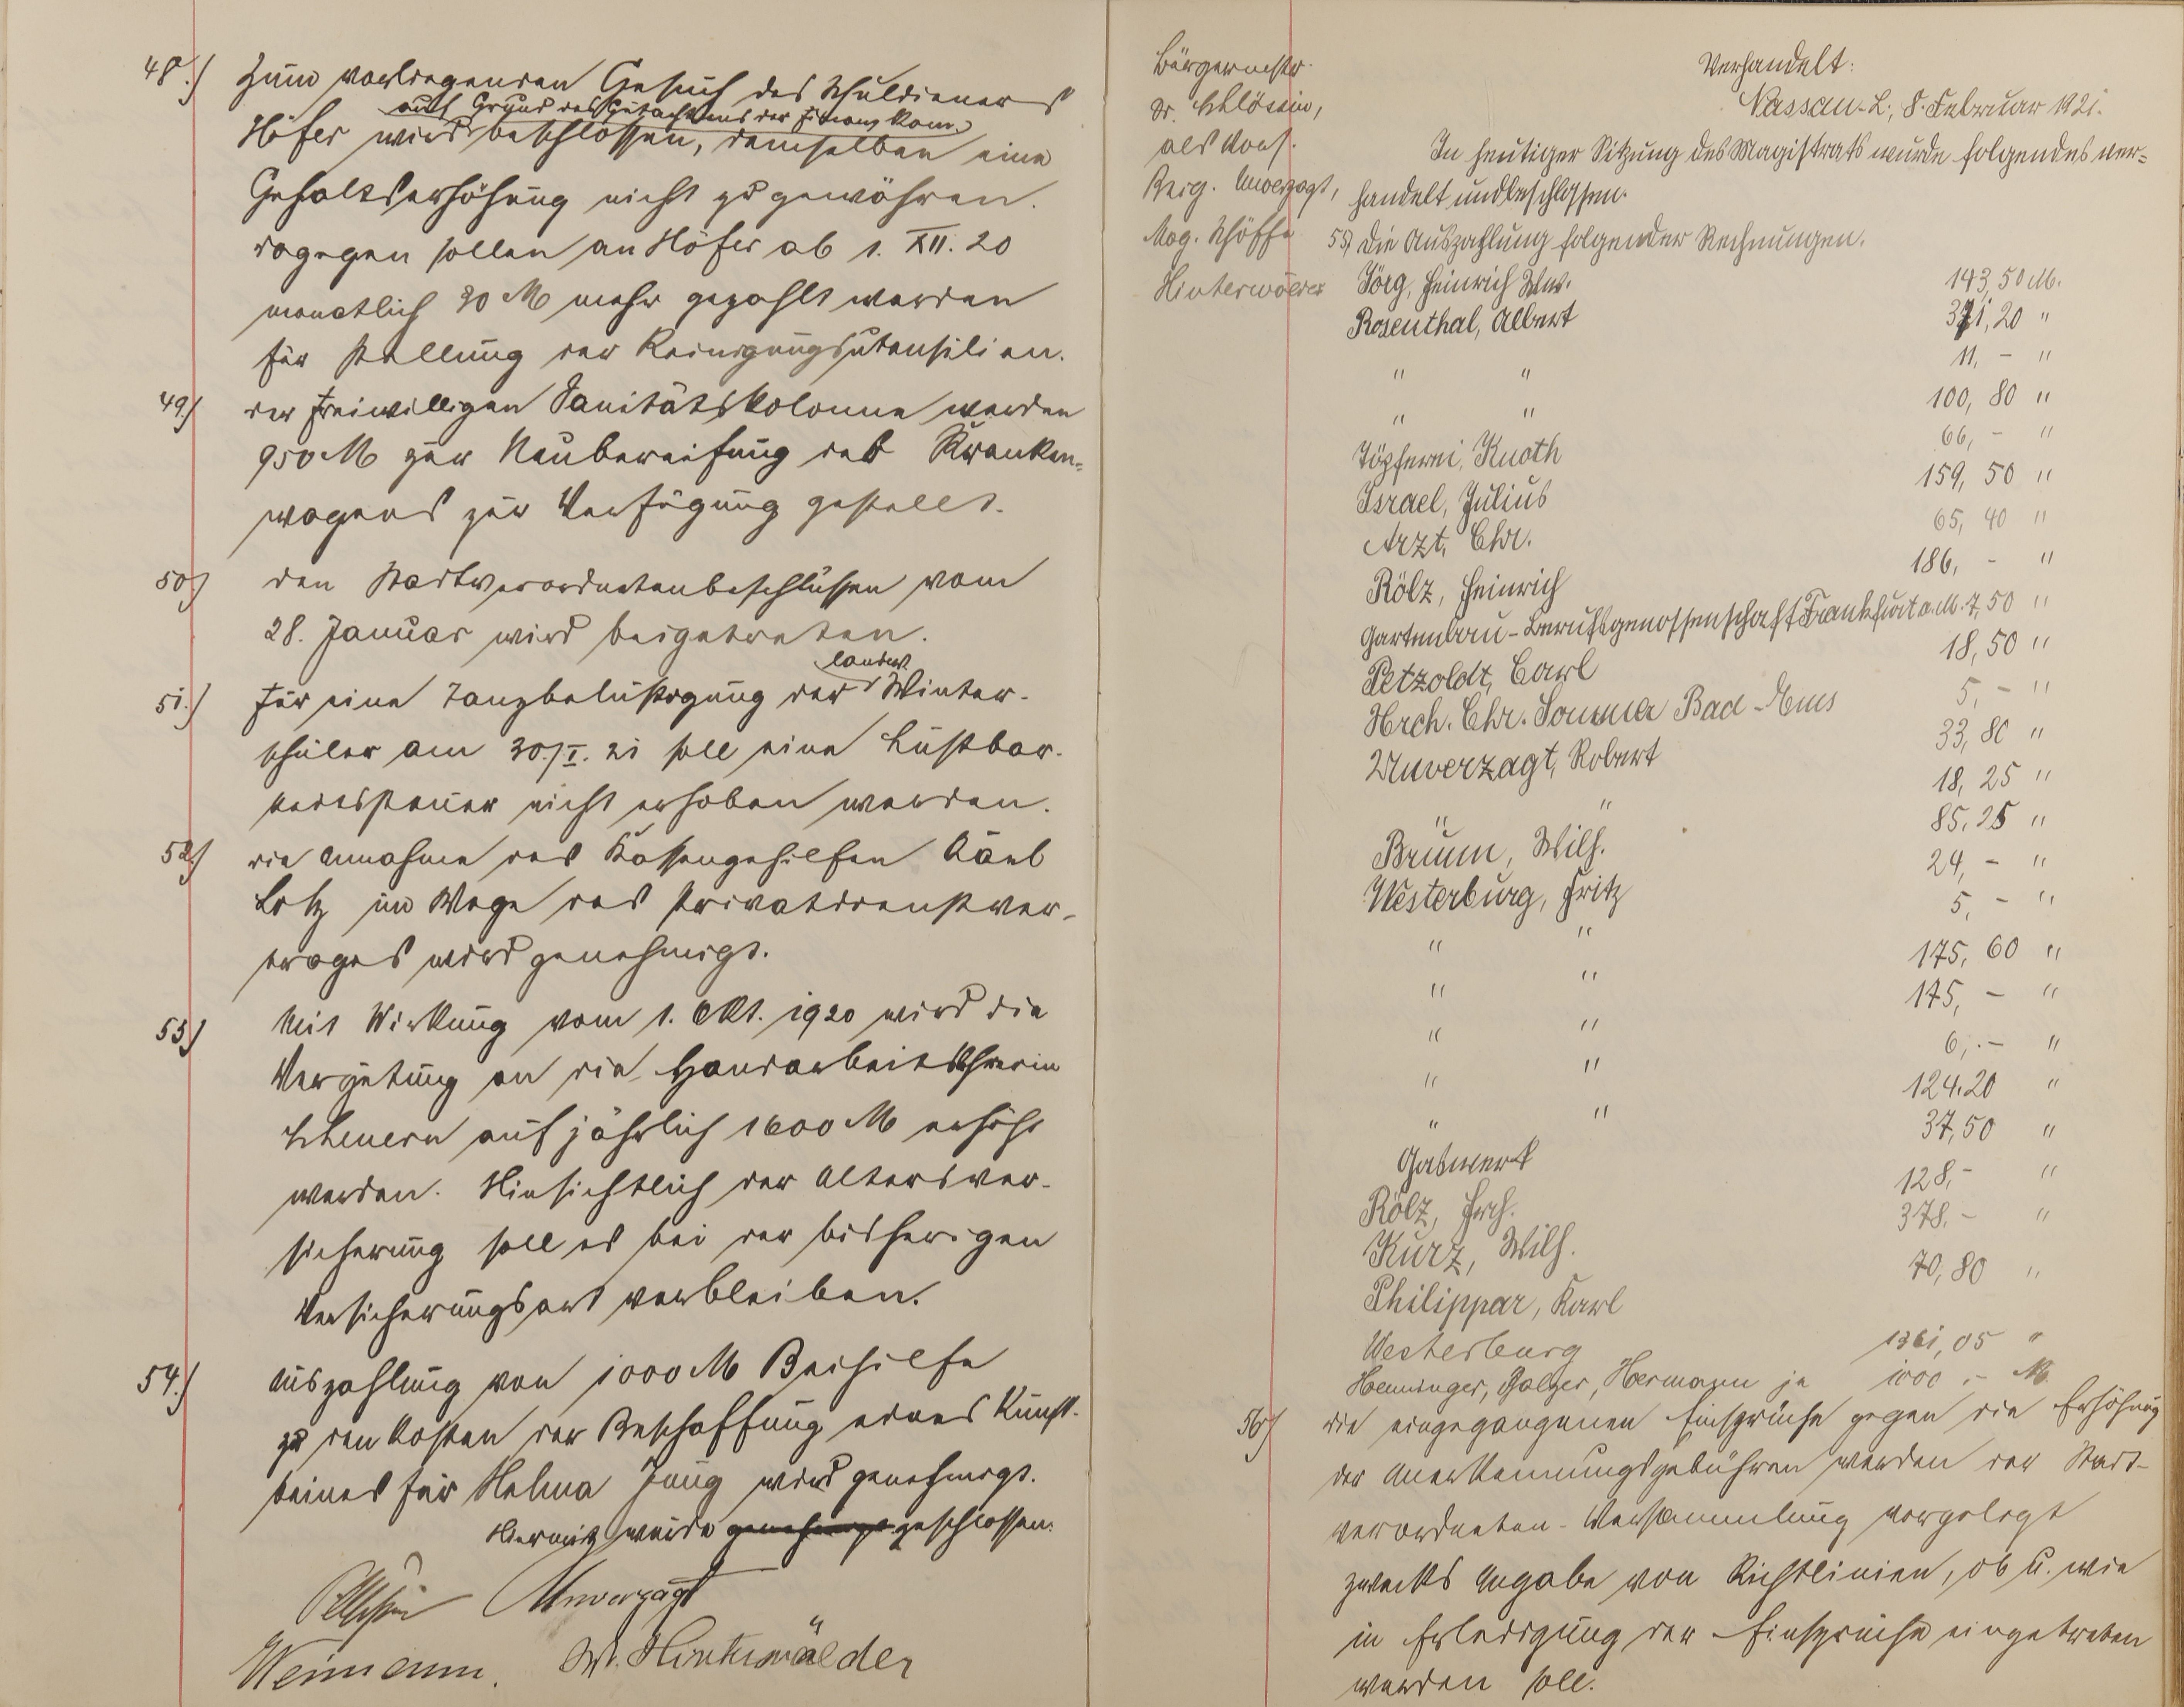 48.) Zum vorliegenden Gesuch des Schuldieners
auf Grund des Gutachtens der Finanzkom.
Höfer wird beschlossen, demselben eine
Gehaltserhöhung nicht zu gewähren.
Dagegen sollen an Höfer ab 1. XII. 20
monatlich 30 M mehr gezahlt werden
für Stellung der Reinigungsutensilien.
49.) Der Freiwilligen Sanitätskolonne werden
950 M zur Neubereifung des Kranken-
wagens zur Verfügung gestellt.
50.) Den Stadtverordnetenbeschlüssen vom
28. Januar wird beigetreten.
landw.
51.) Für eine Tanzbelustigung der Winter-
schüler am 30./I. 21 soll eine Lustbar-
keitssteuer nicht erhoben werden.
52.) Die Annahme des Kassengehilfen
Lotz im Wege des Privatdienstver-
trages wird genehmigt.
53.) Mit Wirkung vom 1. Okt. 1920 wird die
Vergütung an die Handarbeitslehrerin
Scheuern auf jährlich 1600 M erhöht
werden. Hinsichtlich der Altersver-
sicherung soll es bei der bisherigen
Versicherungsart verbleiben.
54.) Auszahlung von 1000 M Beihilfe
zu den Kosten der Beschaffung eines Kunst-
beines für Helma Jung wird genehmigt.
Hiermit wurde genehmigt geschlossen.
Unverzagt
Weimann. W. Hinterwälder
Bürgermstr.
Dr. Schlösin,
als Vors.
Beig. Unverzagt,
Mag. Schöffe
Hinterwälder
Verhandelt:
Nassau-L, 8. Februar 1921.
In heutiger Sitzung des Magistrats wurde folgendes ver-
handelt und beschlossen.
55) Die Auszahlung folgender Rechnungen.
Jörg, Heinrich Ww. 143,50 M.
Rosenthal, Albert 371,20 "
" " 11, - "
" " 100, 80 "
Töpferei, Knoth 66, - "
Israel, Julius 159, 50 "
Arzt, Chr. 65, 40 "
Rölz, Heinrich 186, - "
Gartenbau-Berufsgenossenschaft Frankfurt a. M. 7,50 "
Petzoldt, Carl 18,50 "
Hrch. Chr. Sommer Bad-Ems 5, - "
Unverzagt, Robert 33, 80 "
" " 18, 25 "
Brüm, Wilh. 85,25 "
Westerburg, Fritz 24, - "
" " 5, - "
" " 175, 60 "
" " 175, - "
" " 6, - "
" " 124,20 "
Gaswerk 37,50 "
Rölz, Hrch. 128,- "
Kurz, Wilh. 378,- "
Philippar, Karl 70,80 "
Westerburg 1361,05 "
Henninger, Balzer, Hermann je 1000,- M.
56) Die eingegangenen Einsprüche gegen die Erhöhung
der Anerkennungsgebühren werden der Stadt-
verordneten-Versammlung vorgelegt
zwecks Angabe von Richtlinien, ob u. wie
in Erledigung der Einsprüche eingetreten
werden soll.